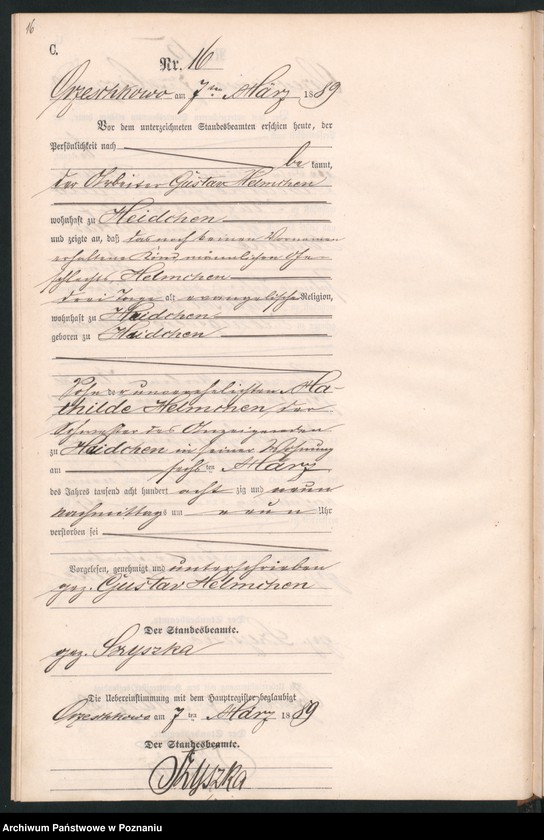 16
C.
Nr. 16
Orzeschkowo am 7ten März 1889
Vor dem unterzeichneten Standesbeamten erschien heute, der
Persönlichkeit nach
be kannt,
der Arbeiter Gustav Helmchen
wohnhaft zu Heidchen
und zeigte an, daß das noch keinen Vornamen
erhaltene Kind männlichen Ge-
schlechts Helmchen
drei Tage alt evangelischer Religion,
wohnhaft zu Haidchen
geboren zu Haidchen
Sohn der unverehelichten Ma-
thilde Helmchen der
Schwester des Anzeigenden
zu Haidchen in seiner Wohnung
am sechsten März
des Jahres tausend acht hundert acht zig und neun
nachmittags um neun Uhr
verstorben sei
Vorgelesen, genehmigt und unterschrieben
gez. Gustav Helmchen
Der Standesbeamte.
gez. Szyszka
Die Uebereinstimmung mit dem Hauptregister beglaubigt
Orzeschkowo am 7 ten März 1889
Der Standesbeamte.
Szyszka
Archiwum Państwowe w Poznaniu